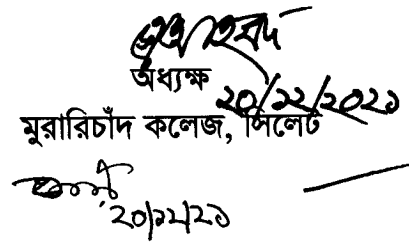 অধ্যক্ষ
২০/১২/২০২১
মুরারিচাঁদ কলেজ, সিলেট
২০/১২/২১